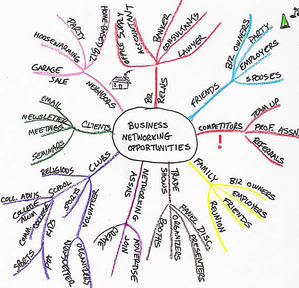 BUSINESS
NETWORKING
OPPORTUNITIES
BIZ
RELAS
BANKER
CONSULTANTS
LAWYER
OFFICE SUPPLY
FRIENDS
BIZ OWNERS
PARTY
EMPLOYERS
SPOUSES
COMPETITORS
!
TEAM UP
PROF. ASSN
REFERRALS
FAMILY
BIZ OWNERS
EMPLOYERS
FRIENDS
REUNION
TRADE
SHOWS
PANEL DISC.
PRESENTERS
ORGANIZERS
BOOTHS
NETWORKING
ASSNS
NON-
COMPETE
CLUBS
RELIGIOUS
SCHOOL
COLL. ADVIS.
COLLEGE
ALUM
COMM. COLLEGE
KIDS
SPORTS
PTA
SPORTS
VOLUNTEER
ORGANIZER
NEWSLETTER
CLIENTS
EMAIL
NEWSLETTER
MEETINGS
SEMINARS
NEIGHBORS
GARAGE
SALE
HOUSEWARMING
PARTY
HOME-BASED
BIZ